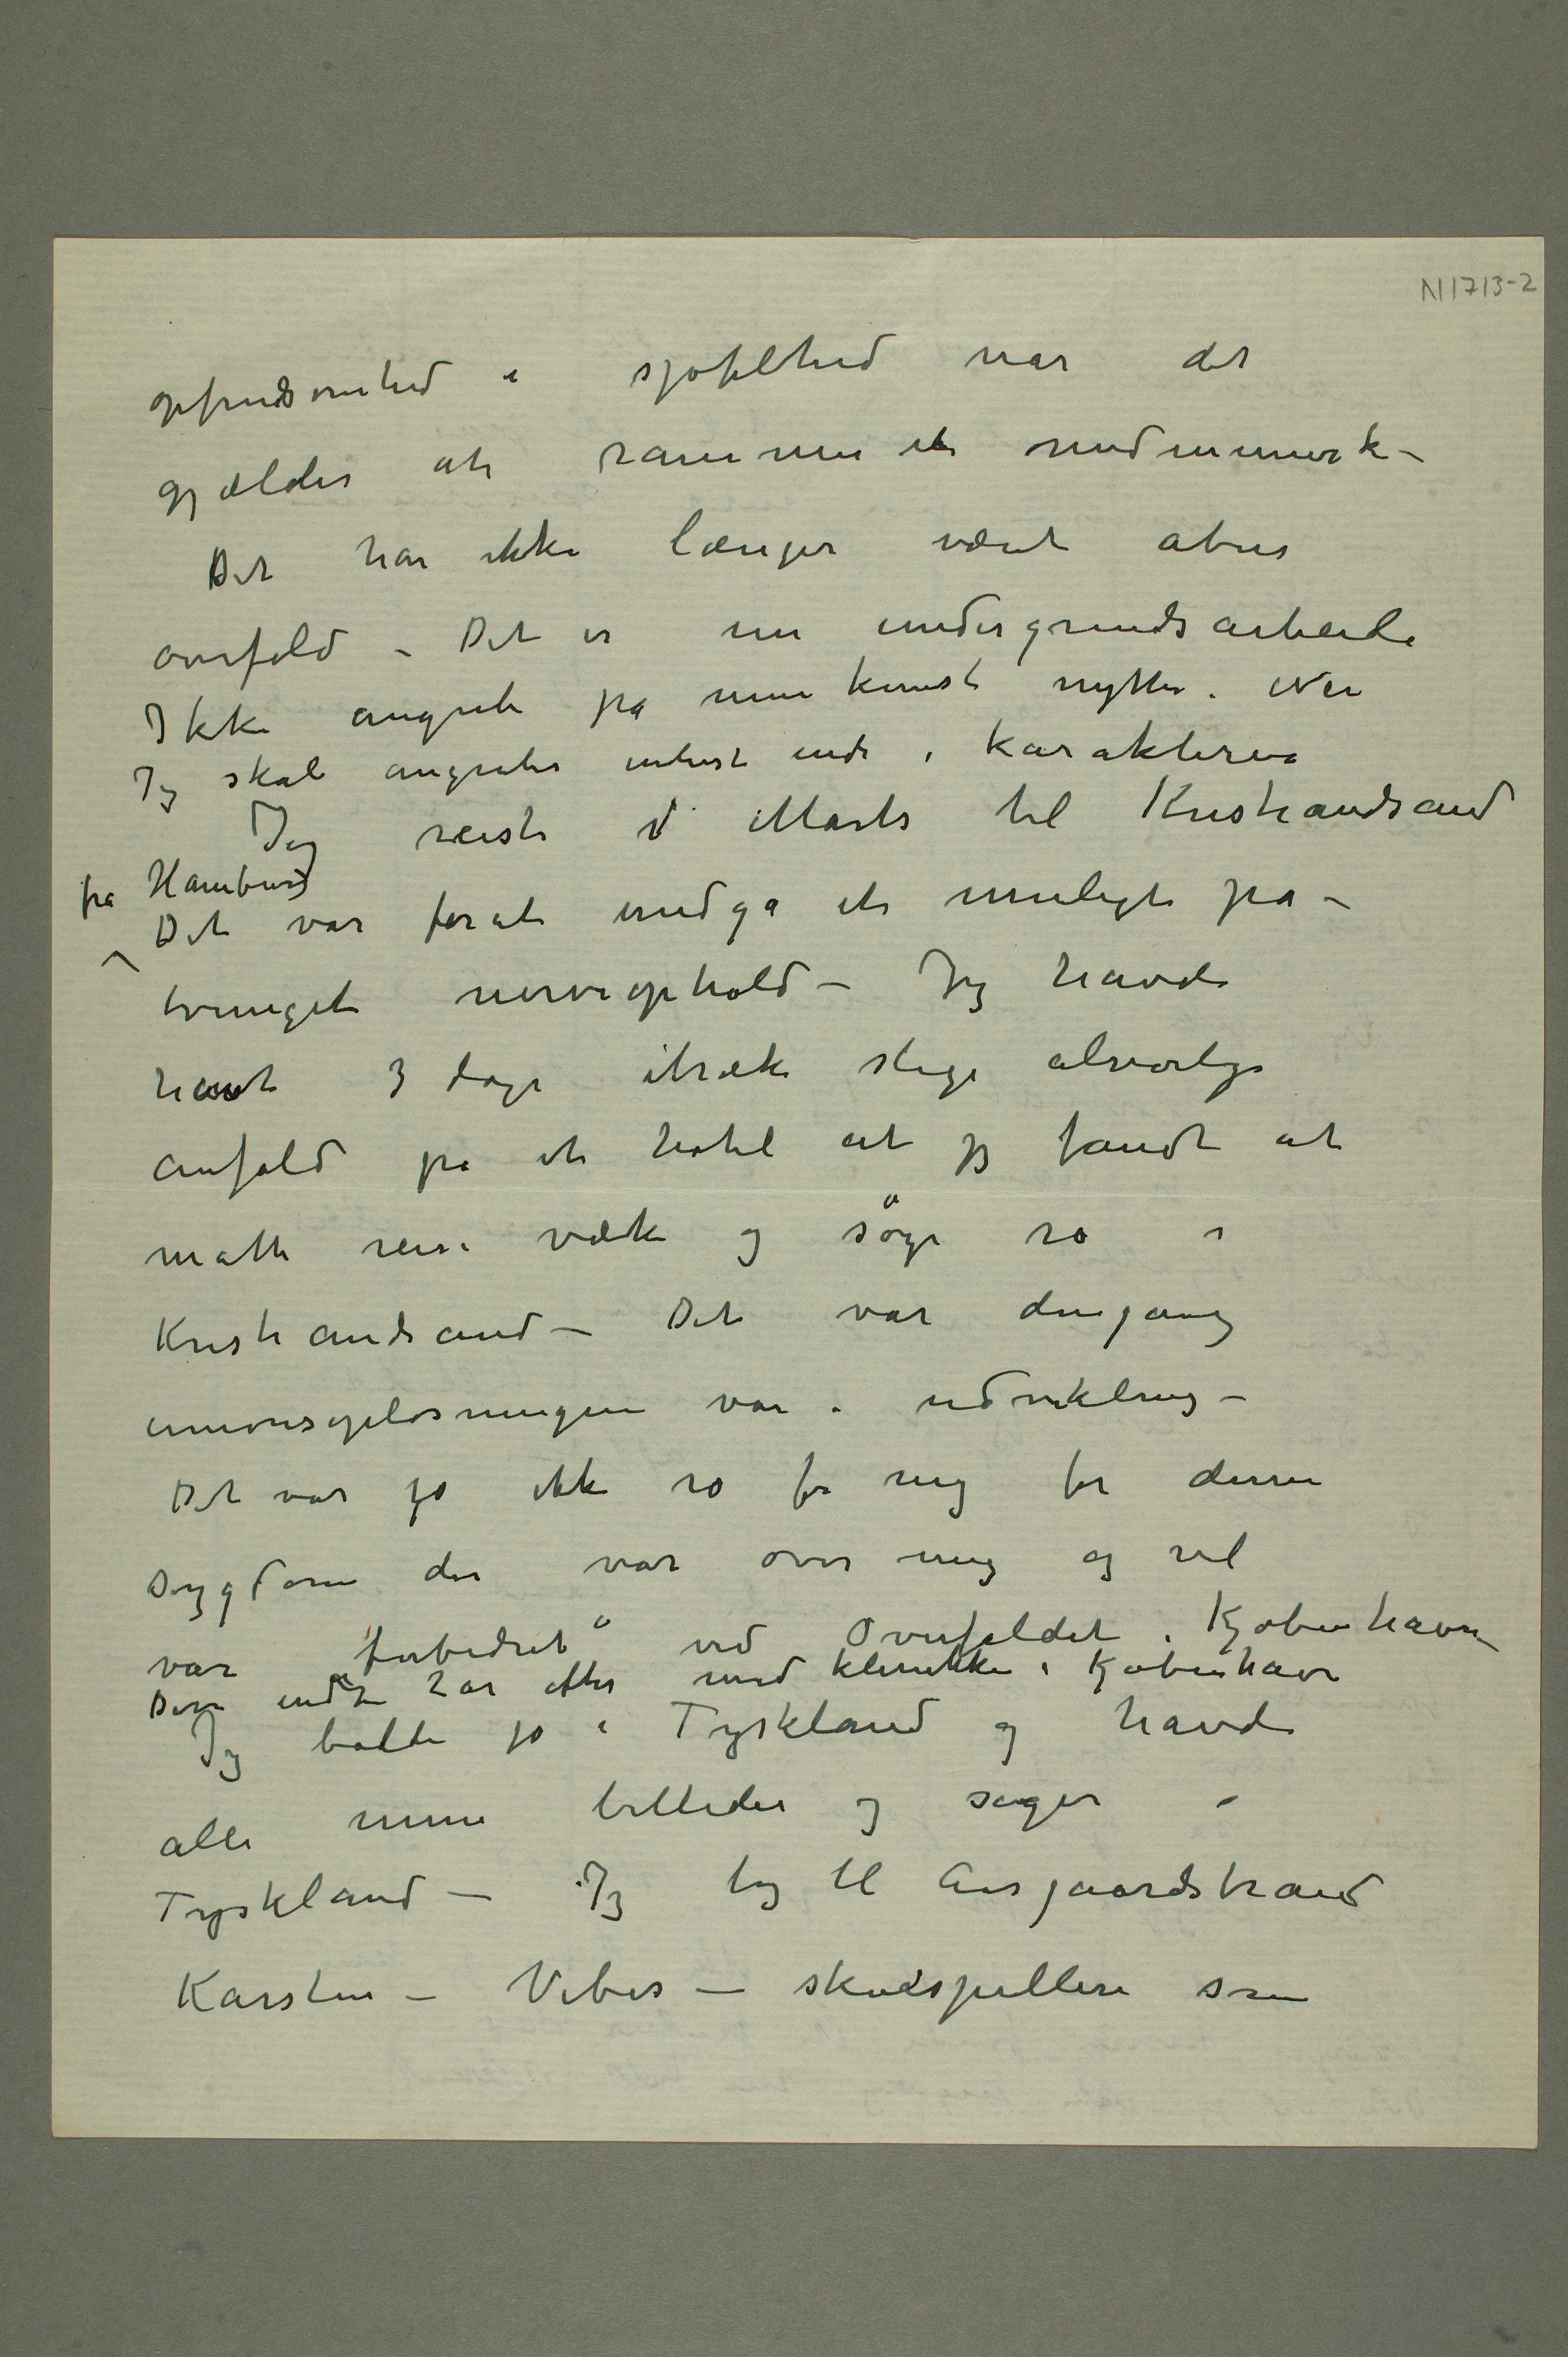 N 1713-2
opfindsomhed i sjofelhed når det
gjælder at ramme et medmennesk –
Det har ikke længer været åbne
overfald – Det er nu undergrundsarbeide
Ikke angrebe på min kunst nytter. Nei
Jeg skal angribes inderst inde i karakteren
Jeg reiste i Marts til Kristiandsand
fra Hamburg
Det var forat undgå et muligt på-
tvunget nerveophold – Jeg havde
havt 3 dage itræk slige alvorlige
anfald på et hotel at jeg fandt at
måtte reise væk og søge ro i
Kristiandsand – Det var dengang
unionsopløsningen var i udvikling –
Det var jo ikke ro for mig for denne
sygdom der var over mig og vel
var "forbedret" ved Overfaldet i Kjøbenhavn –
Den endte 2 år efter med klinikken i Kjøbenhavn
Jeg boede jo i Tyskland og havde
alle mine billeder og sager i
Tyskland – Jeg tog til Aasgaardstrand
Karsten – Vibes – skuespillere som